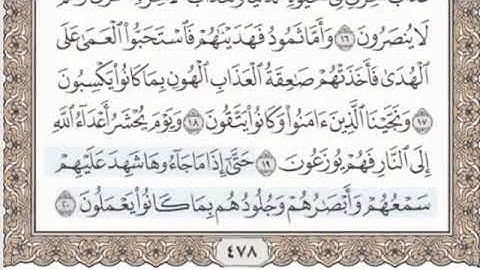 لَا يُنصَرُونَ ١٦ وَأَمَّا ثَمُودُ فَهَدَيْنَٰهُمْ فَٱسْتَحَبُّوا۟ ٱلْعَمَىٰ عَلَى
ٱلْهُدَىٰ فَأَخَذَتْهُمْ صَٰعِقَةُ ٱلْعَذَابِ ٱلْهُونِ بِمَا كَانُوا۟ يَكْسِبُونَ
١٧ وَنَجَّيْنَا ٱلَّذِينَ ءَامَنُوا۟ وَكَانُوا۟ يَتَّقُونَ ١٨ وَيَوْمَ يُحْشَرُ أَعْدَآءُ ٱللَّهِ
إِلَى ٱلنَّارِ فَهُمْ يُوزَعُونَ ١٩ حَتَّىٰٓ إِذَا مَا جَآءُوهَا شَهِدَ عَلَيْهِمْ
سَمْعُهُمْ وَأَبْصَٰرُهُمْ وَجُلُودُهُم بِمَا كَانُوا۟ يَعْمَلُونَ ٢٠
٤٧٨